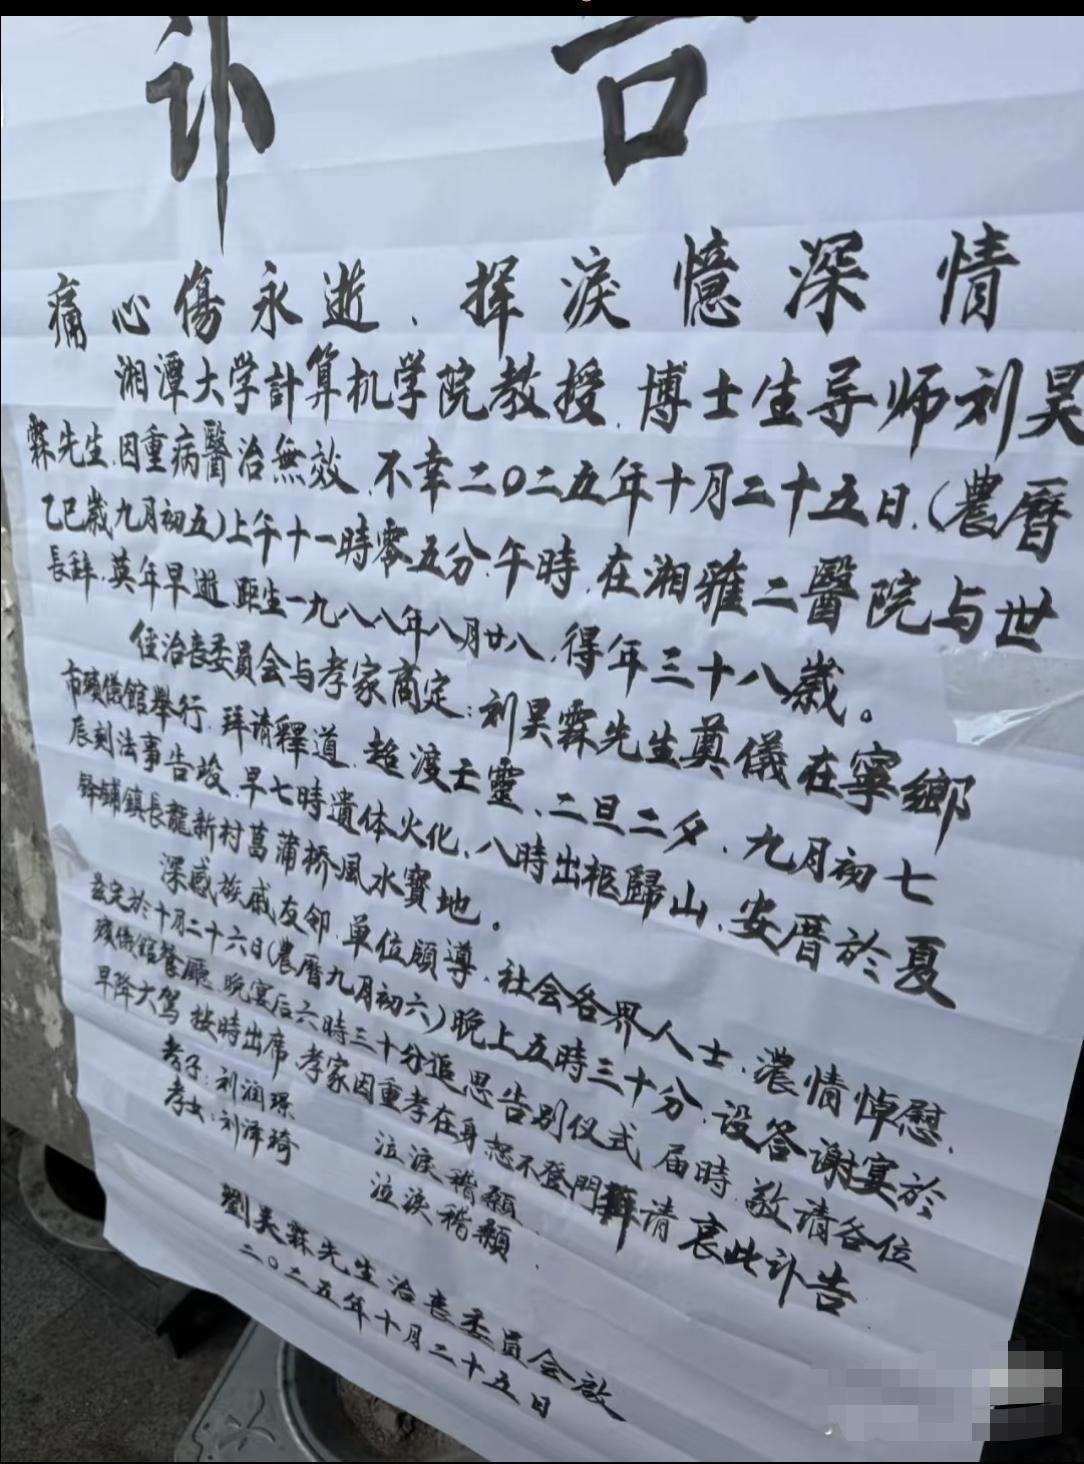 讣告
痛心傷永逝、揮淚憶深情
湘潭大学計算机学院教授、博士生导师刘昊
霖先生、因重病醫治無效、不幸二〇二五年十月二十五日、(農曆
乙巳歲九月初五)上午十一時零五分、午時、在湘雅二醫院与世
長辞、英年早逝、距生一九八八年八月廿八、得年三十八歲。
经治丧委員会与孝家商定：刘昊霖先生奠儀在寧鄉
市殯儀館舉行、拜请釋道、超渡亡靈、二旦二夕、九月初七
辰刻法事告竣、早七時遺体火化、八時出柩歸山、安厝於夏
鐸鋪鎮長龍新村菖蒲桥風水寳地。
深感族戚友邻、单位領導、社会各界人士、濃情悼慰、
兹定於十月二十六日(農曆九月初六)晚上五時三十分、设答谢宴於
殯儀館餐廳、晚宴后六時三十分追思告别仪式、届時、敬请各位
早降大驾、按時出席、孝家因重孝在身恕不登門、请衷此讣告
孝子：刘润璟 泣淚稽顙
孝女：刘泽琦 泣淚稽顙
劉昊霖先生治丧委員会啟
二〇二五年十月二十五日